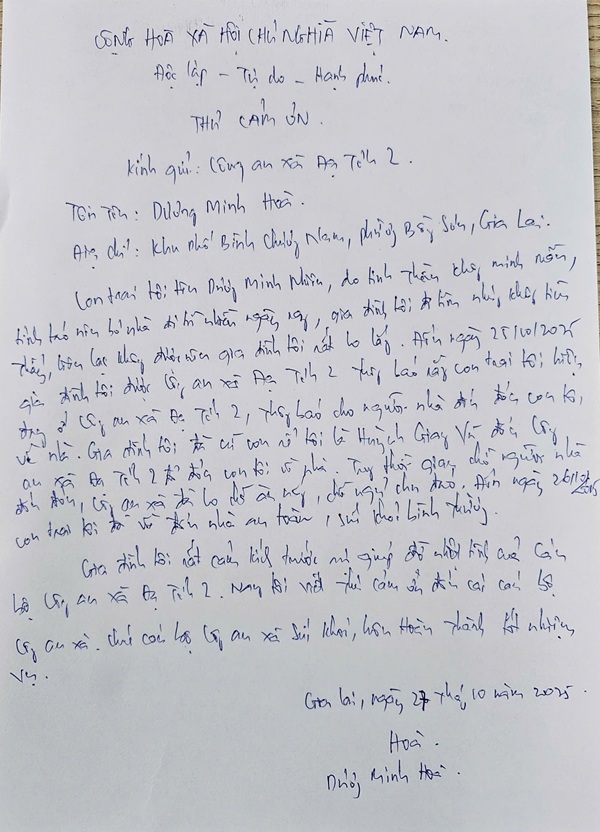 CỘNG HOÀ XÃ HỘI CHỦ NGHĨA VIỆT NAM.
Độc lập - Tự do - Hạnh phúc.
THƯ CẢM ƠN.
Kính gửi: Công an xã Đạ Tẻh 2.
Tôi tên: Dương Minh Hoà.
Địa chỉ: Khu phố Bình Chương Nam, phường Bồng Sơn, Gia Lai.
Con trai tôi tên Dương Minh Nhiên, do tinh thần không minh mẫn,
tính trẻ nên bỏ nhà đi nhiều ngày nay, gia đình tôi đi tìm nhưng không tìm
thấy, liên lạc không được nên gia đình tôi rất lo lắng. Đến ngày 25/10/2025
gia đình tôi được Công an xã Đạ Tẻh 2 thông báo rằng con trai tôi hiện
đang ở Công an xã Đạ Tẻh 2, thông báo cho người nhà đến đón con tôi,
về nhà. Gia đình tôi đã cử con rể tôi là Huỳnh Giang Vũ đến Công
an xã Đạ Tẻh 2 để đón con tôi về nhà. Trong thời gian chờ người nhà
đến đón, Công an xã đã lo chỗ ăn, chỗ nghỉ chu đáo. Đến ngày 26/10/2025
con trai tôi đã về đến nhà an toàn, sức khoẻ bình thường.
Gia đình tôi rất cảm kích trước sự giúp đỡ nhiệt tình của cán
bộ Công an xã Đạ Tẻh 2. Nay tôi viết thư cảm ơn đến các cán bộ
Công an xã. Chúc cán bộ Công an xã sức khoẻ, luôn hoàn thành tốt nhiệm
vụ.
Gia Lai, ngày 27 tháng 10 năm 2025.
Hoà.
Dương Minh Hoà.